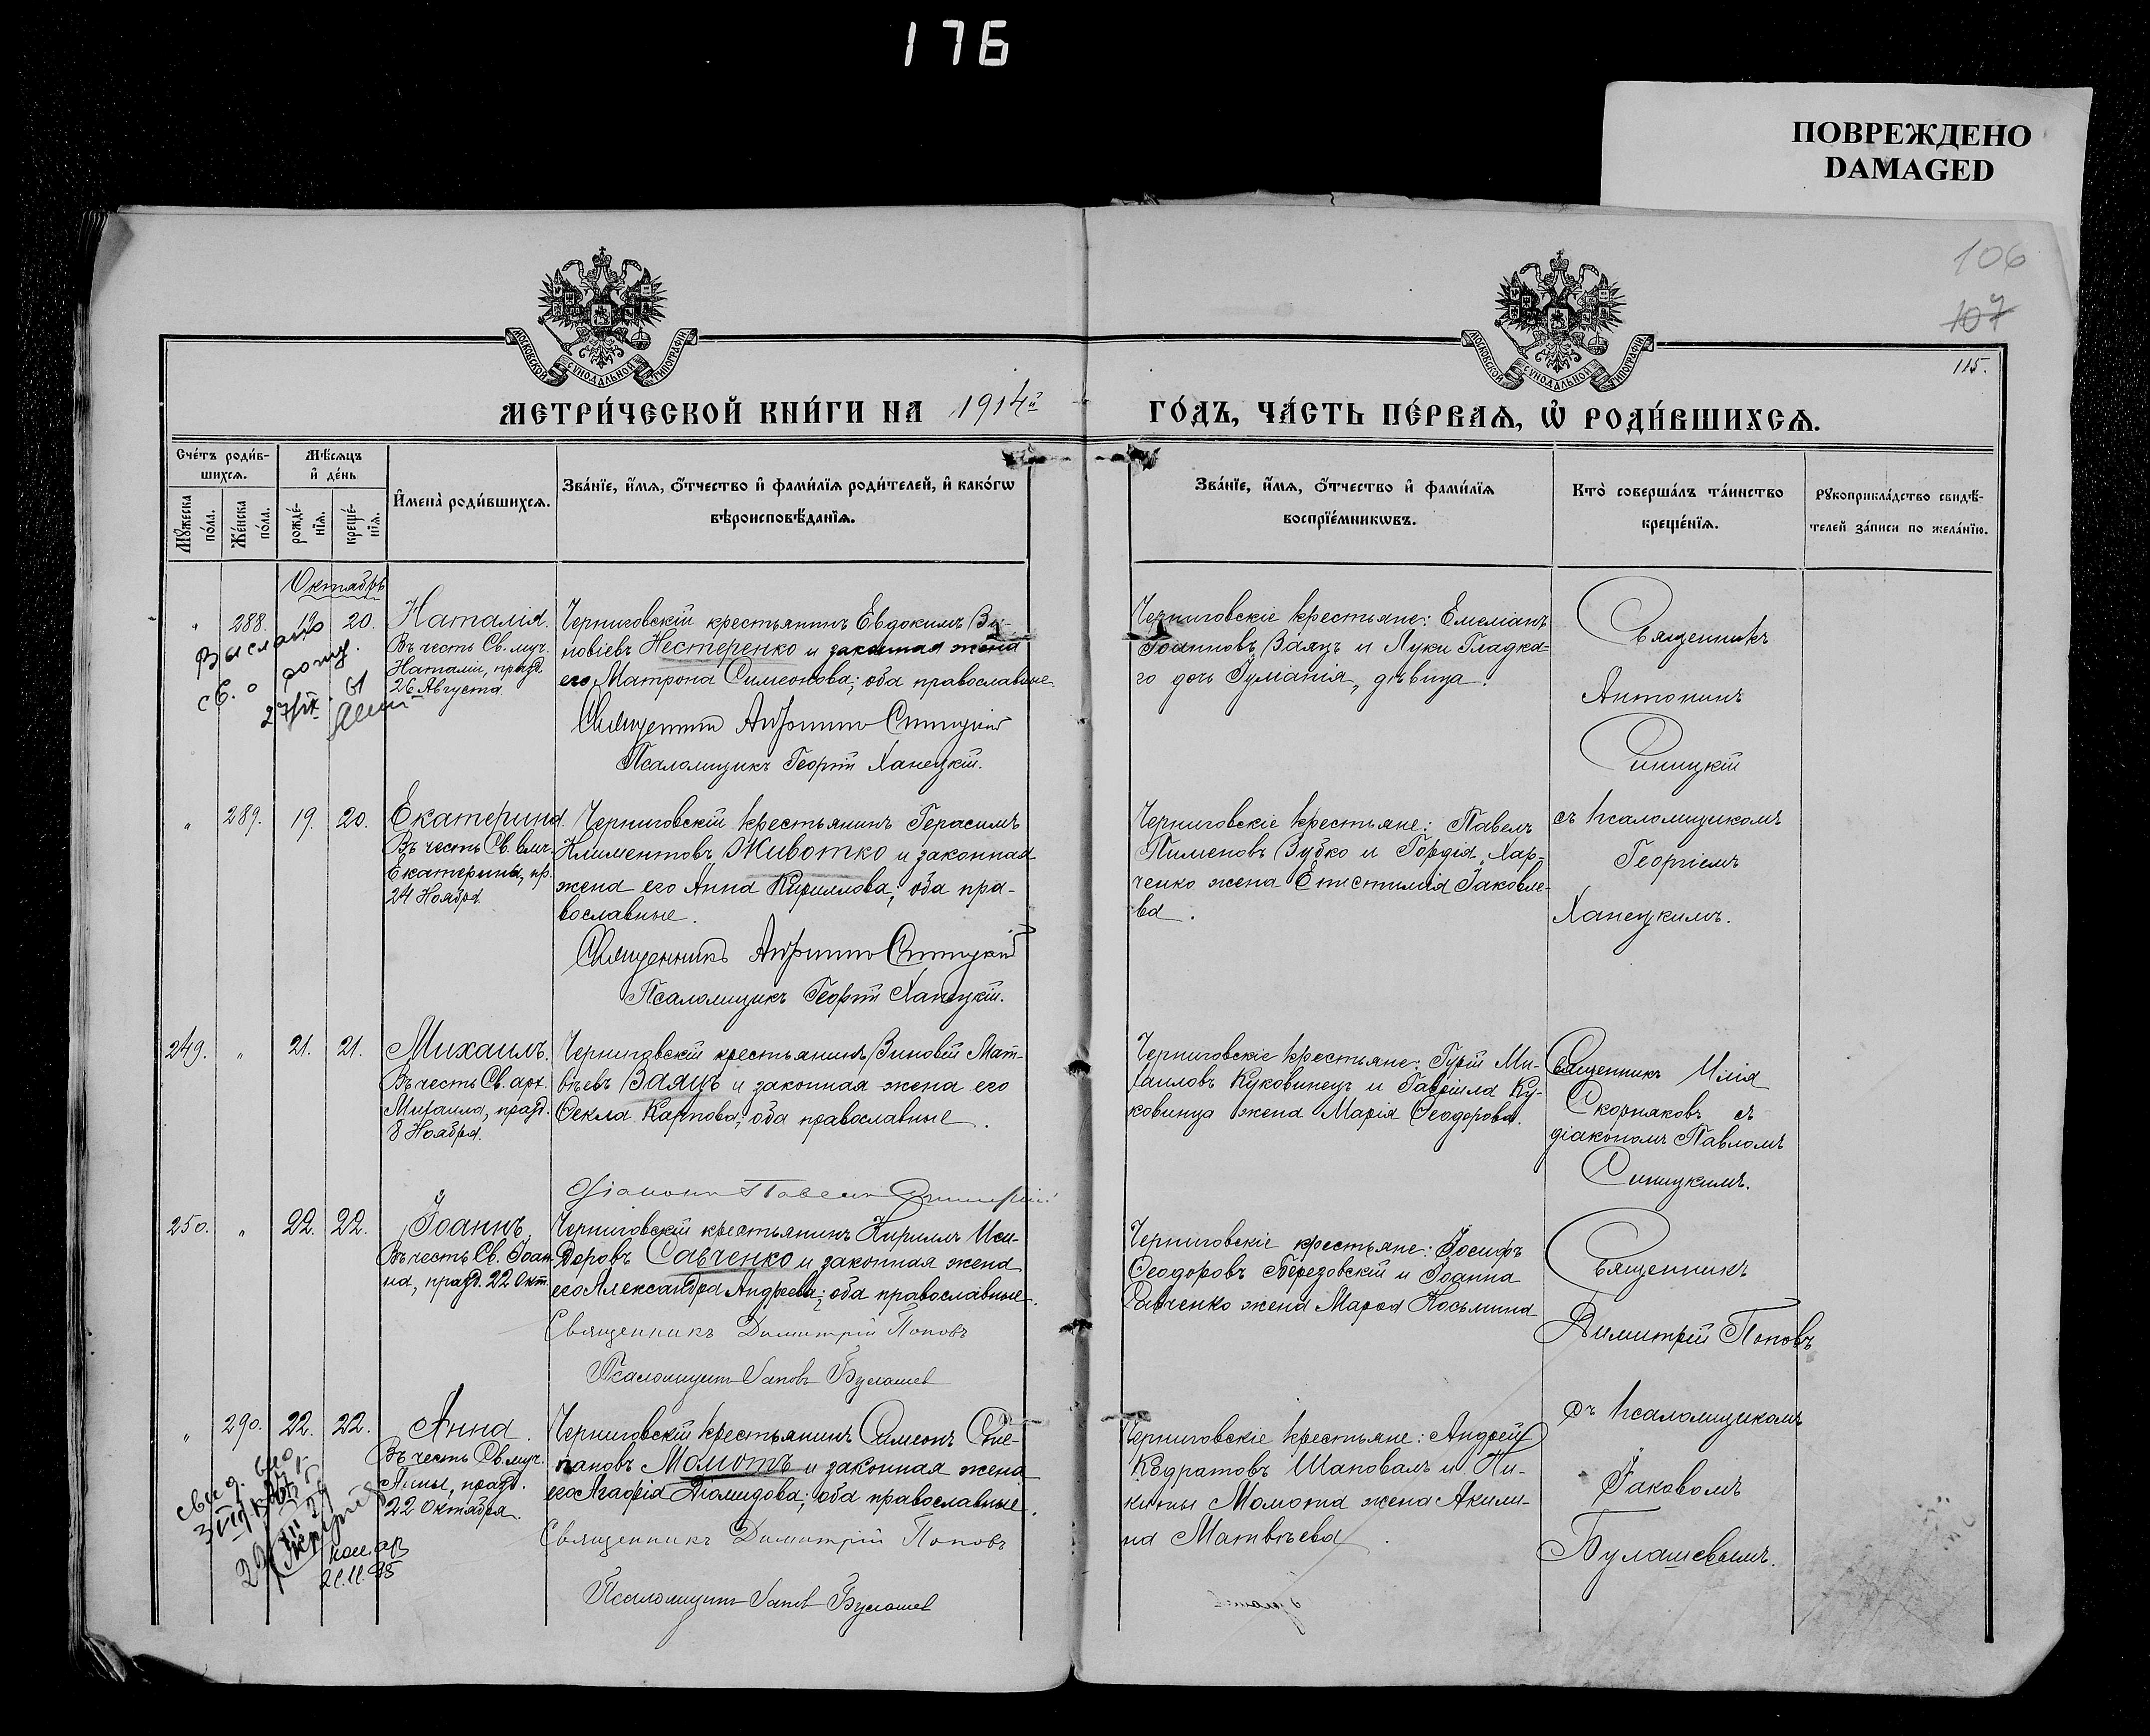 176
ПОВРЕЖДЕНО
DAMAGED
106
107
115.
МОСКОВСКОЙ СѴНОДАЛЬНОЙ ТИПОГРАФІИ
МОСКОВСКОЙ СѴНОДАЛЬНОЙ ТИПОГРАФІИ
МЕТРИ́ЧЕСКОЙ КНИ́ГИ НА 1914й
ГО́ДЪ, ЧА́СТЬ ПЕ́РВАѦ, Ѡ҆ РОДИ́ВШИХСѦ.
Сче́тъ роди́в-
шихсѧ.
Мꙋ́жеска по́ла.
Же́нска по́ла.
Мѣ́сѧцъ
и҆ де́нь
рожде́-
нїѧ.
креще́-
нїѧ.
И҆мена̀ роди́вшихсѧ.
Зва́нїе, и҆́мѧ, ѻ҆́тчество и҆ фами́лїѧ роди́телей, и҆ како́гѡ
вѣроисповѣ́данїѧ.
Зва́нїе, и҆́мѧ, ѻ҆́тчество и҆ фами́лїѧ
воспрїе́мникѡвъ.
Кто̀ соверша́лъ та́инство
креще́нїѧ.
Рꙋкоприкла́дство свидѣ́-
телей за́писи по жела́нїю.
Октябрь
" 288. 19 20. Наталія.
Въ честь Св. муч.
Наталіи, празд.
26 Августа
Выслано
св. о рожд.
27/IX. 61
Черниговскій крестьянинъ Евдокимъ Зи-
новіевъ Нестеренко и законная жена
его Матрона Симеонова; оба православные.
Священникъ Антонинъ Синицкій
Псаломщикъ Георгій Ханецкій.
Черниговскіе крестьяне: Емеліанъ
Іоанновъ Заяцъ и Луки Гладка-
го дочь Гуманія, дѣвица.
Священникъ
Антонинъ
Синицкій
" 289. 19. 20. Екатерина.
Въ честь Св. влмч.
Екатерины, пр.
24 Ноября
Черниговскій крестьянинъ Герасимъ
Климентовъ Животко и законная
жена его Анна Кириллова; оба пра-
вославные.
Священникъ Антонинъ Синицкій
Псаломщикъ Георгій Ханецкій.
Черниговскіе крестьяне: Павелъ
Пименовъ Зубко и Гордія Хар-
ченко жена Епистимія Іаковле-
ва.
съ псаломщикомъ
Георгіемъ
Ханецкимъ.
249. " 21. 21. Михаилъ.
Въ честь Св. арх.
Михаила, празд.
8 Ноября.
Черниговскій крестьянинъ Зиновій Мат-
вѣевъ Заяцъ и законная жена его
Ѳекла Карпова; оба православные.
Діаконъ Павелъ Синицкій
Черниговскіе крестьяне: Гурій Ми-
хаиловъ Куковинецъ и Гавріила Ку-
ковинца жена Марія Ѳеодорова.
Священникъ Илія
Скорняковъ съ
діакономъ Павломъ
Синицкимъ.
250. " 22. 22. Іоаннъ.
Въ честь Св. Іоан-
на, празд. 22 Окт.
Черниговскій крестьянинъ Кириллъ Иси-
доровъ Савченко и законная жена
его Александра Андреева; оба православные.
Священникъ Димитрій Поповъ
Псаломщикъ Іаковъ Булашев
Черниговскіе крестьяне: Іосифъ
Ѳеодоровъ Березовскій и Іоанна
Савченко жена Марѳа Косьмина
Священникъ
Димитрій Поповъ
съ псаломщикомъ
Іаковомъ
Булашевымъ.
" 290. 22. 22. Анна.
Въ честь Св. муч.
Анны, празд.
22 Октября.
21.11.85
Черниговскій крестьянинъ Симеонъ Сте-
пановъ Момотъ и законная жена
его Агафія Діомидова; оба православные.
Священникъ Димитрій Поповъ
Псаломщикъ Іаков Булашев
Черниговскіе крестьяне: Андрей
Кодратовъ Шаповалъ и Ни-
киты Момота жена Акили-
на Матвѣева.